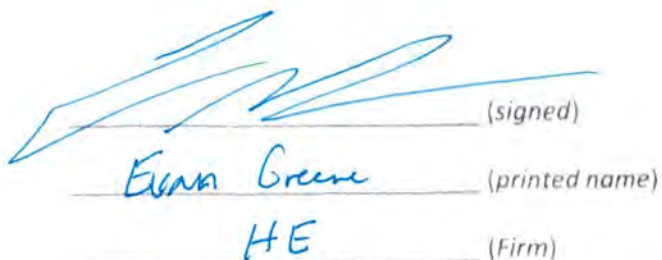 (signed)
Evan Greene (printed name)
HE (Firm)